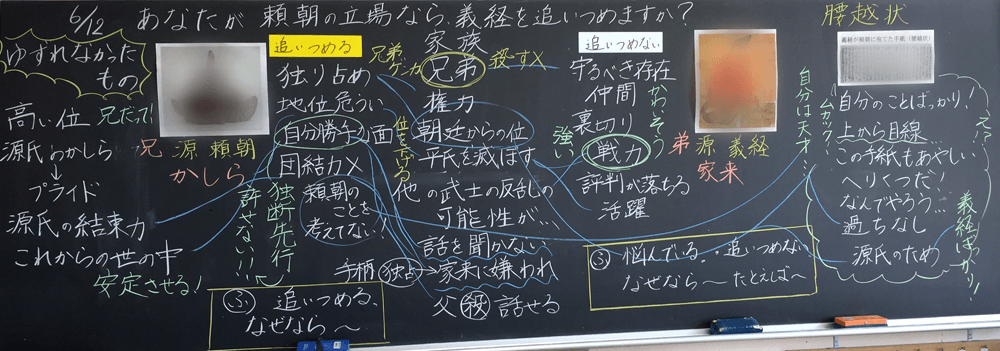 6/12 あなたが頼朝の立場なら、義経を追いつめますか?
ゆずれなかった
もの
高い位 兄だぞ!
源氏のかしら
↓
プライド
源氏の結束力
これからの世の中
安定させる!
兄 源 頼朝
かしら
追いつめる
独り占め
地位危うい
自分勝手な面
団結力×
頼朝の
ことを
考えてない!
独断先行
許せない!!!
手柄 独占→家来に嫌われ
③ 追いつめる、
なぜなら〜
家族
兄弟
兄弟
ゲンカ
殺す×
権力
朝廷からの位
位を広げる
平氏を滅ぼす
他の武士の反乱の
可能性が…
話を聞かない
父 殺 話せる
追いつめない
守るべき存在
仲間
かわいそう
裏切り
強い
戦力
評判が落ちる
活躍
③ 悩んでいる。。追いつめない
なぜなら〜たとえば〜
弟 源 義経
家来
腰越状
義経が頼朝に宛てた手紙(腰越状)
自分は天才!
ムカッ!
自分のことばっかり!
上から目線
この手紙もあやしい
へりくつだ!
なんでやろう…
過ちなし
源氏のため
えっ?!
義経ばっかり!